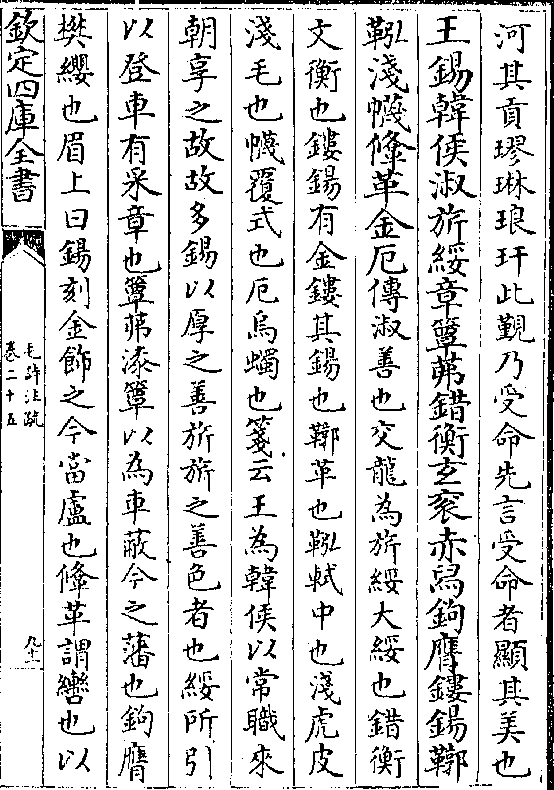 河其貢璆琳琅玕此覲乃受命先言受命者顯其美也
王錫韓侯淑旂綏章簟茀錯衡玄衮赤舄鉤膺鏤鍚鞹
鞃淺幭鞗革金厄傳淑善也交龍為旂綏大綏也錯衡
文衡也鏤鍚有金鏤其鍚也鞹革也鞃軾中也淺虎皮
淺毛也幭覆式也厄烏蠋也箋云王為韓侯以常職來
朝享之故故多錫以厚之善旂旂之善色者也綏所引
以登車有采章也簟茀漆簟以為車蔽今之藩也鉤膺
樊纓也眉上曰鍚刻金飾之今當盧也鞗革謂轡也以
欽定四庫全書
毛詩注疏
卷二十五
九十二